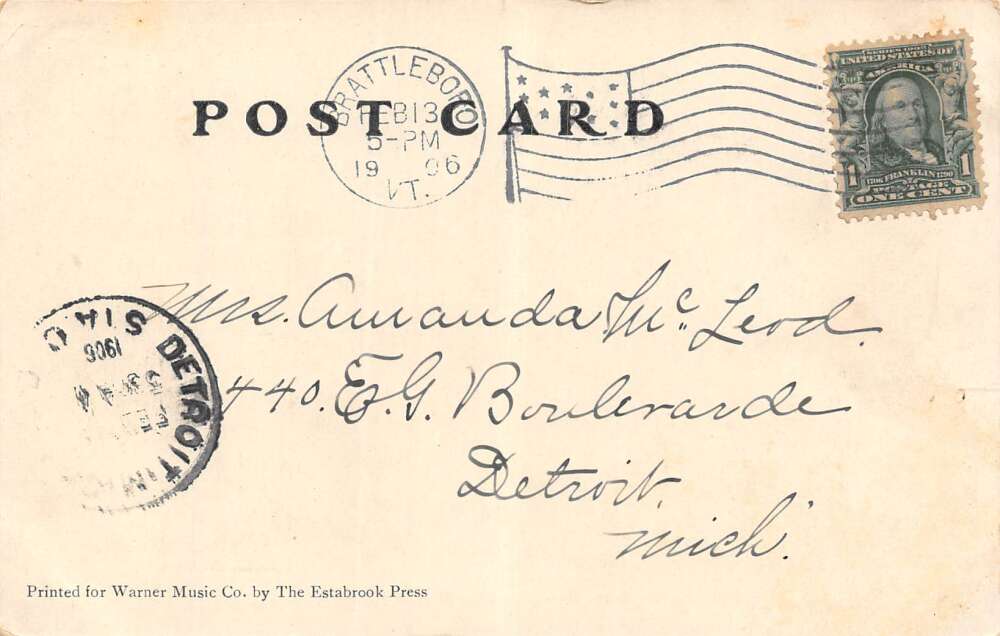 POST CARD
BRATTLEBORO
FEB 13
5-PM
19 06
VT.
SERIES 1902
UNITED STATES OF
AMERICA
1 1
1706 FRANKLIN 1790
POSTAGE
ONE CENT
Mrs. Amanda Mc Leod.
440. E. G. Boulevarde
Detroit,
Mich.
DETROIT, MICH.
STA
1906
FEB
Printed for Warner Music Co. by The Estabrook Press